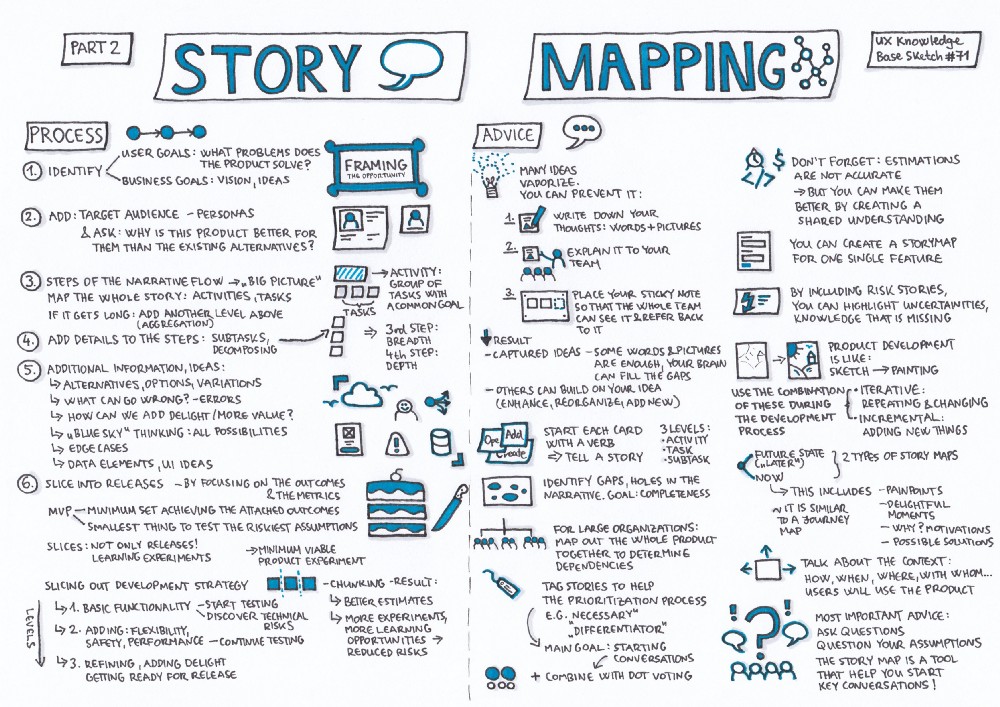 PART 2
STORY
MAPPING
UX Knowledge
Base Sketch #71
PROCESS
1. IDENTIFY
USER GOALS: WHAT PROBLEMS DOES
THE PRODUCT SOLVE?
BUSINESS GOALS: VISION, IDEAS
FRAMING
THE OPPORTUNITY
2. ADD: TARGET AUDIENCE - PERSONAS
& ASK: WHY IS THIS PRODUCT BETTER FOR
THEM THAN THE EXISTING ALTERNATIVES?
3. STEPS OF THE NARRATIVE FLOW → „BIG PICTURE"
MAP THE WHOLE STORY: ACTIVITIES, TASKS
IF IT GETS LONG: ADD ANOTHER LEVEL ABOVE
(AGGREGATION)
→ ACTIVITY:
GROUP OF
TASKS WITH
A COMMON GOAL
TASKS
4. ADD DETAILS TO THE STEPS: SUBTASKS,
DECOMPOSING
⇒ 3rd STEP:
BREADTH
4th STEP:
DEPTH
5. ADDITIONAL INFORMATION, IDEAS:
↳ ALTERNATIVES, OPTIONS, VARIATIONS
↳ WHAT CAN GO WRONG? - ERRORS
↳ HOW CAN WE ADD DELIGHT / MORE VALUE?
↳ „BLUE SKY" THINKING: ALL POSSIBILITIES
↳ EDGE CASES
↳ DATA ELEMENTS, UI IDEAS
6. SLICE INTO RELEASES - BY FOCUSING ON THE OUTCOMES
& THE METRICS
MVP - MINIMUM SET ACHIEVING THE ATTACHED OUTCOMES
SMALLEST THING TO TEST THE RISKIEST ASSUMPTIONS
SLICES: NOT ONLY RELEASES!
LEARNING EXPERIMENTS
→ MINIMUM VIABLE
PRODUCT EXPERIMENT
SLICING OUT DEVELOPMENT STRATEGY
- CHUNKING - RESULT:
LEVELS
↳ 1. BASIC FUNCTIONALITY - START TESTING
DISCOVER TECHNICAL
RISKS
↳ 2. ADDING: FLEXIBILITY,
SAFETY, PERFORMANCE - CONTINUE TESTING
↳ 3. REFINING, ADDING DELIGHT
GETTING READY FOR RELEASE
↳ BETTER ESTIMATES
↳ MORE EXPERIMENTS,
MORE LEARNING
OPPORTUNITIES →
REDUCED RISKS
ADVICE
MANY IDEAS
VAPORIZE.
YOU CAN PREVENT IT:
1. WRITE DOWN YOUR
THOUGHTS: WORDS + PICTURES
2. EXPLAIN IT TO YOUR
TEAM
3. PLACE YOUR STICKY NOTE
SO THAT THE WHOLE TEAM
CAN SEE IT & REFER BACK
TO IT
RESULT
- CAPTURED IDEAS - SOME WORDS & PICTURES
ARE ENOUGH, YOUR BRAIN
CAN FILL THE GAPS
- OTHERS CAN BUILD ON YOUR IDEA
(ENHANCE, REORGANIZE, ADD NEW)
Ope
Add
Create
START EACH CARD
WITH A VERB
⇒ TELL A STORY
3 LEVELS:
• ACTIVITY
• TASK
• SUBTASK
IDENTIFY GAPS, HOLES IN THE
NARRATIVE. GOAL: COMPLETENESS
FOR LARGE ORGANIZATIONS:
MAP OUT THE WHOLE PRODUCT
TOGETHER TO DETERMINE
DEPENDENCIES
TAG STORIES TO HELP
THE PRIORITIZATION PROCESS
E.G. NECESSARY"
„DIFFERENTIATOR"
MAIN GOAL: STARTING
CONVERSATIONS
+ COMBINE WITH DOT VOTING
$
</>
DON'T FORGET: ESTIMATIONS
ARE NOT ACCURATE
→ BUT YOU CAN MAKE THEM
BETTER BY CREATING A
SHARED UNDERSTANDING
YOU CAN CREATE A STORYMAP
FOR ONE SINGLE FEATURE
BY INCLUDING RISK STORIES,
YOU CAN HIGHLIGHT UNCERTAINTIES,
KNOWLEDGE THAT IS MISSING
PRODUCT DEVELOPMENT
IS LIKE:
SKETCH → PAINTING
USE THE COMBINATION
OF THESE DURING
THE DEVELOPMENT
PROCESS
• ITERATIVE:
REPEATING & CHANGING
• INCREMENTAL:
ADDING NEW THINGS
FUTURE STATE
(„LATER")
NOW
2 TYPES OF STORY MAPS
↳ THIS INCLUDES
- PAINPOINTS
- DELIGHTFUL
MOMENTS
- WHY? MOTIVATIONS
- POSSIBLE SOLUTIONS
~ IT IS SIMILAR
TO A JOURNEY
MAP
TALK ABOUT THE CONTEXT:
HOW, WHEN, WHERE, WITH WHOM...
USERS WILL USE THE PRODUCT
MOST IMPORTANT ADVICE:
ASK QUESTIONS
QUESTION YOUR ASSUMPTIONS
THE STORY MAP IS A TOOL
THAT HELP YOU START
KEY CONVERSATIONS!